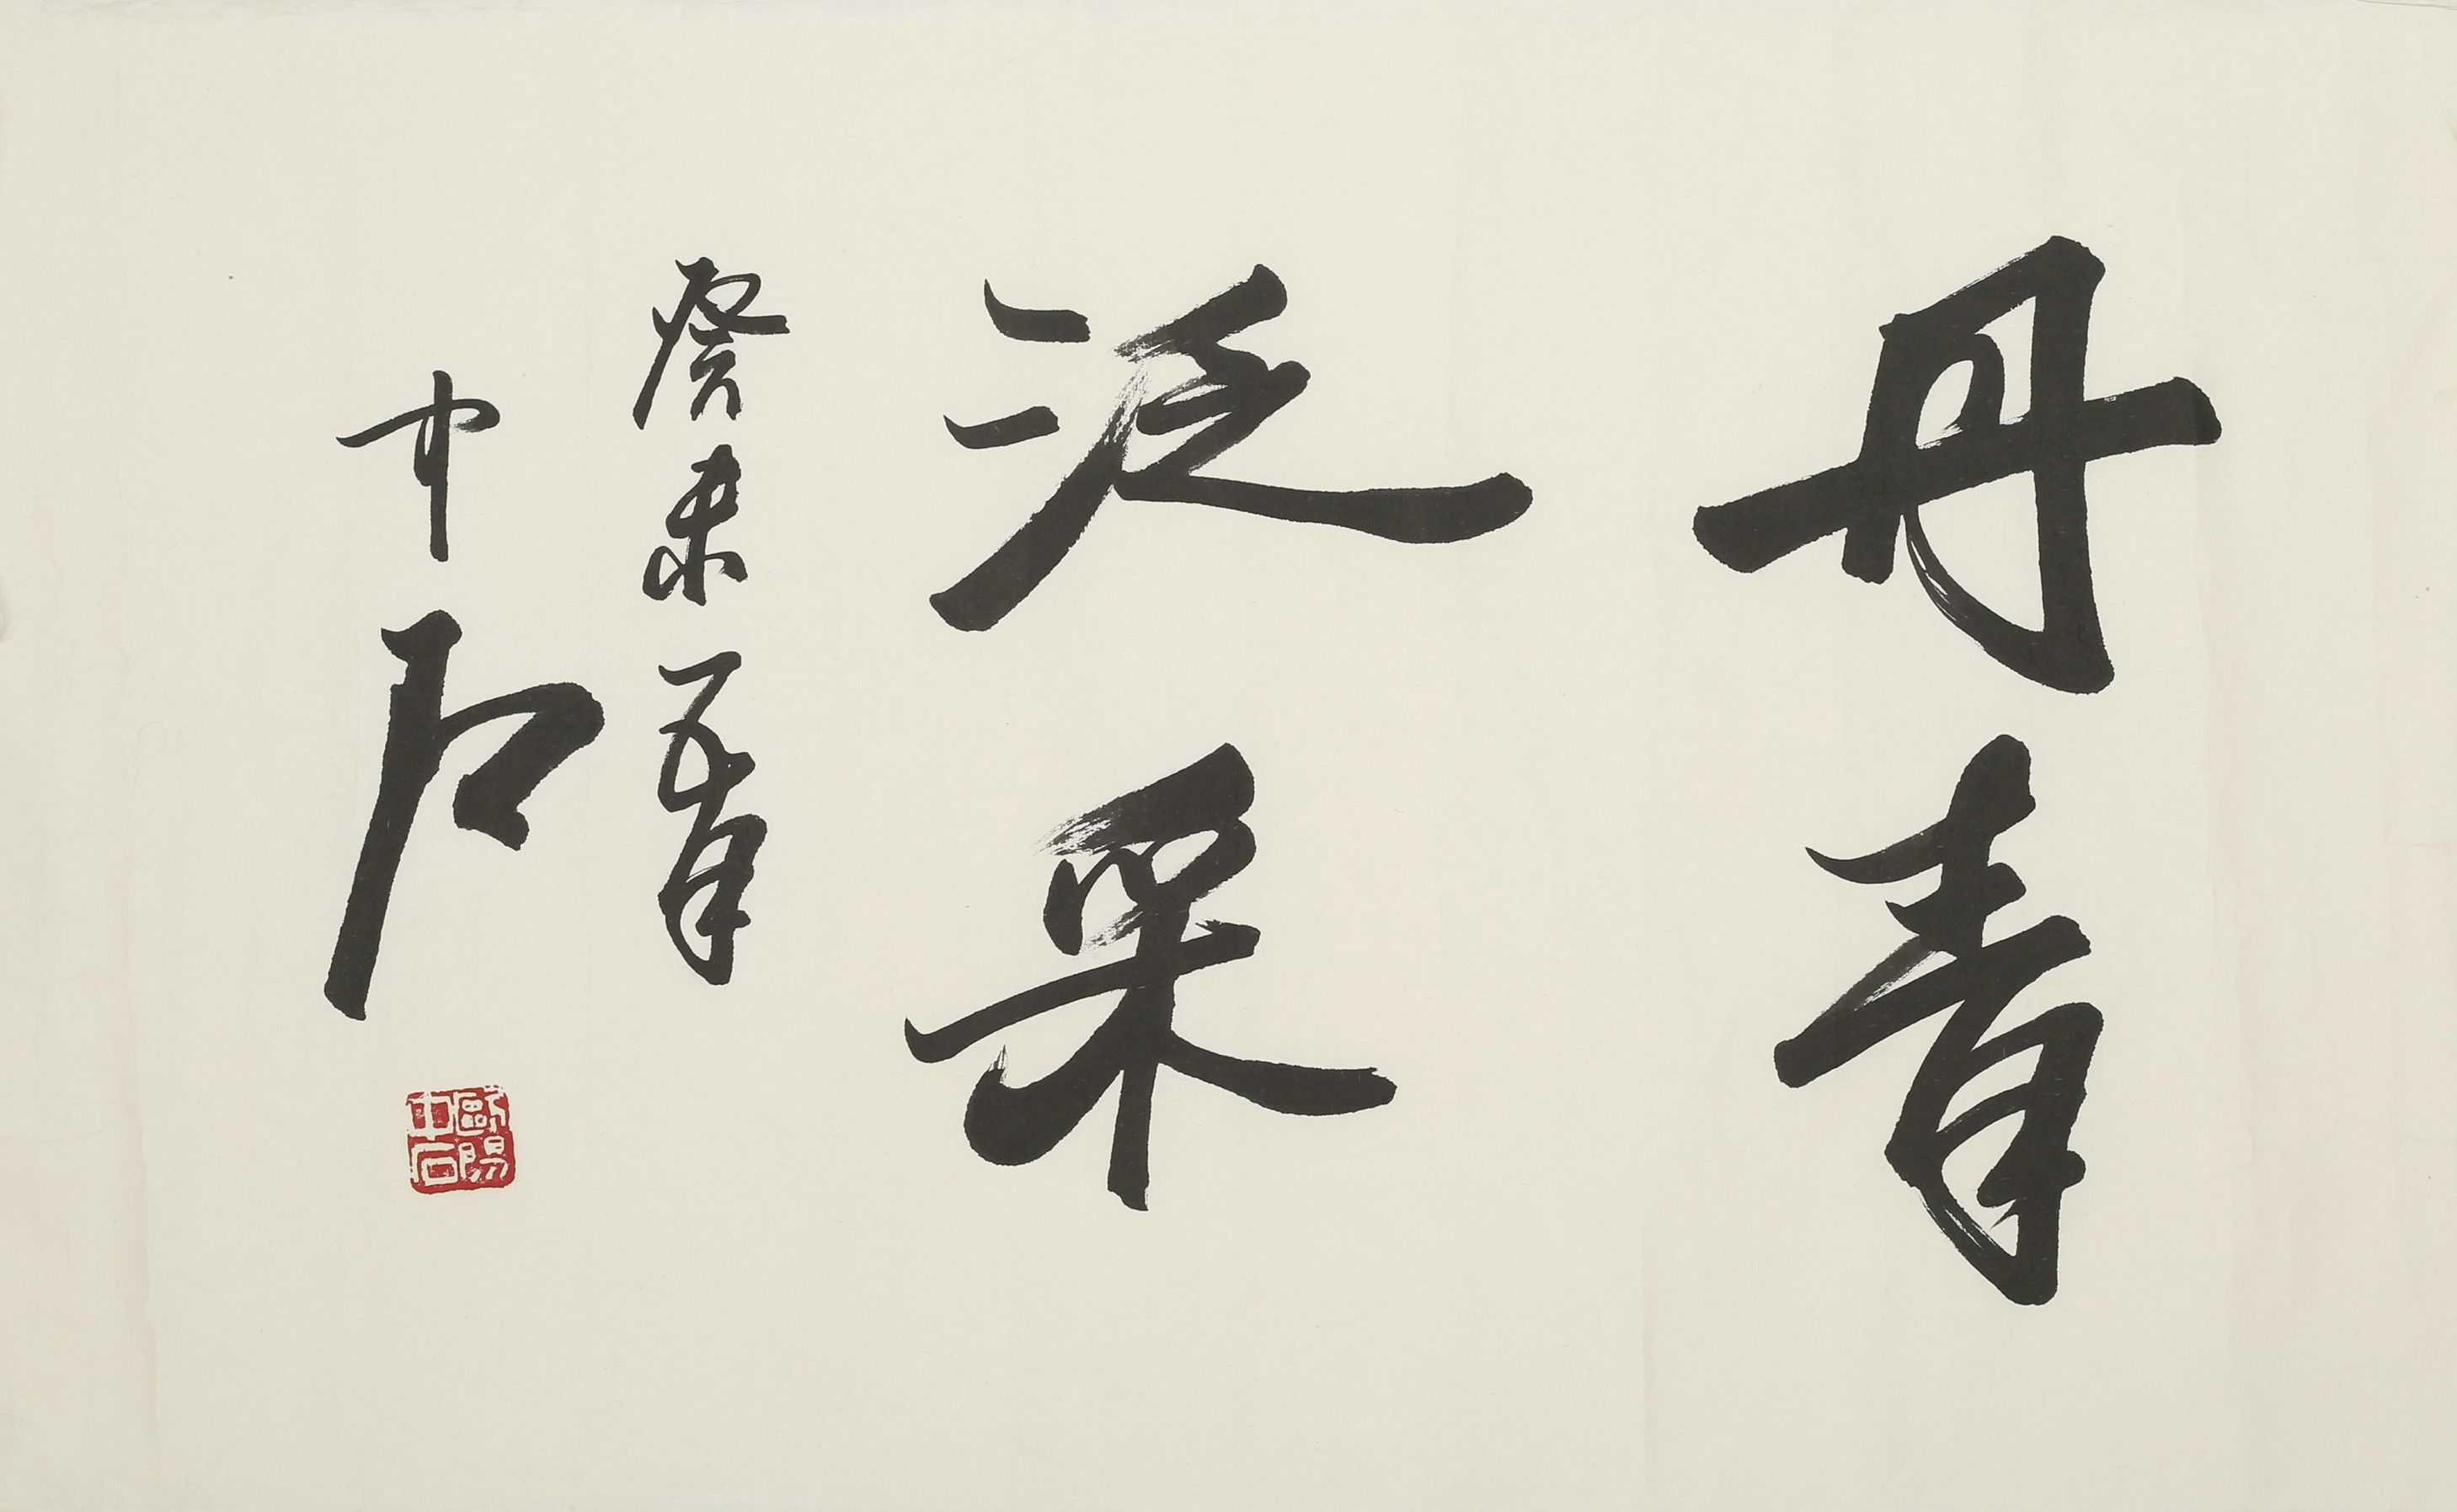 丹青
泛采
癸未五月
中石
歐陽
中石